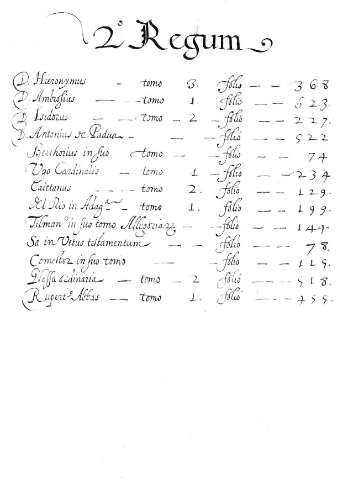 2º Regum
D. Hieronymus — tomo — 3. folio — — 368
D. Ambrosius — — tomo — 1. folio — — 623.
D. Isidorus — — tomo — 2 — folio — — 227.
D. Antonius de Padua — — folio — — 522
Berchorius in suo — tomo — — folio — — 74
Vgo Cardinalis — tomo — 1 — folio — — 234
Caietanus — tomo — 2. folio — — 129.
del Rio in Adag — tomo — 1. folio — — 199.
Tilman in suo tomo Allegoria — folio — — 149.
Sa in Vetus testamentum — folio — — 78.
Comestor in suo tomo — — folio — — 115.
Glossa ordinaria — tomo — 2 — folio — — 518.
Rupert Abbas — — tomo — 1. folio — — 455.